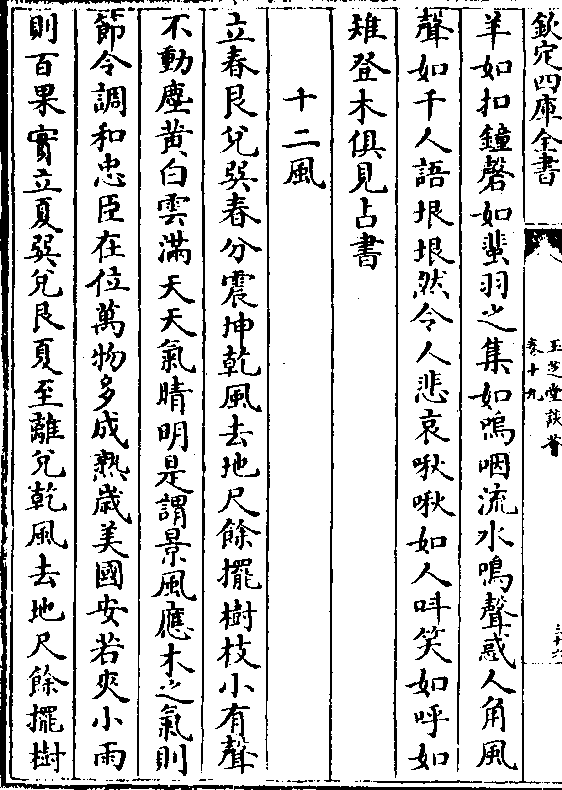 欽定四庫全書
玉芝堂談薈
卷十九
三十六
羊如扣鐘磬如蜚羽之集如嗚咽流水鳴聲惑人角風
聲如千人語垠垠然令人悲哀啾啾如人呌笑如呼如
雉登木俱見占書
十二風
立春艮兌巽春分震坤乾風去地尺餘擺樹枝小有聲
不動塵黄白雲滿天天氣晴明是謂景風應木之氣則
節令調和忠臣在位萬物多成熟歲美國安若夾小雨
則百果實立夏巽兌艮夏至離兌乾風去地尺餘擺樹